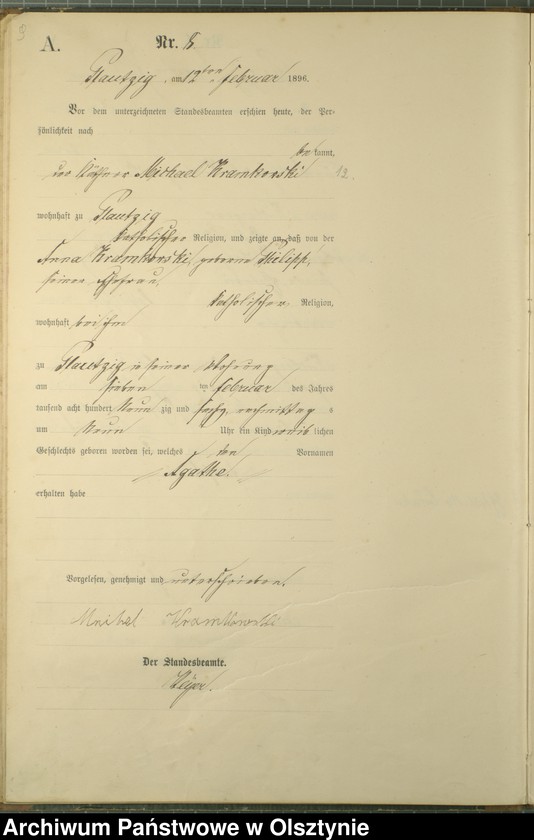 A.
Nr. 8.
Plautzig, am 12ten Februar 1896.
Vor dem unterzeichneten Standesbeamten erschien heute, der Per-
sönlichkeit nach
be kannt,
der Käthner Michael Kramkowski 12.
wohnhaft zu Plautzig
katholischer Religion, und zeigte an, daß von der
Anna Kramkowski, geborene Philipp,
seiner Ehefrau,
katholischer Religion,
wohnhaft bei ihm
zu Plautzig in seiner Wohnung
am sieben ten Februar des Jahres
tausend acht hundert neun zig und sechs nachmittag s
um neun Uhr ein Kind weib lichen
Geschlechts geboren worden sei, welches den Vornamen
Agathe
erhalten habe
Vorgelesen, genehmigt und unterschrieben.
Michel Kramkowski
Der Standesbeamte.
Archiwum Państwowe w Olsztynie